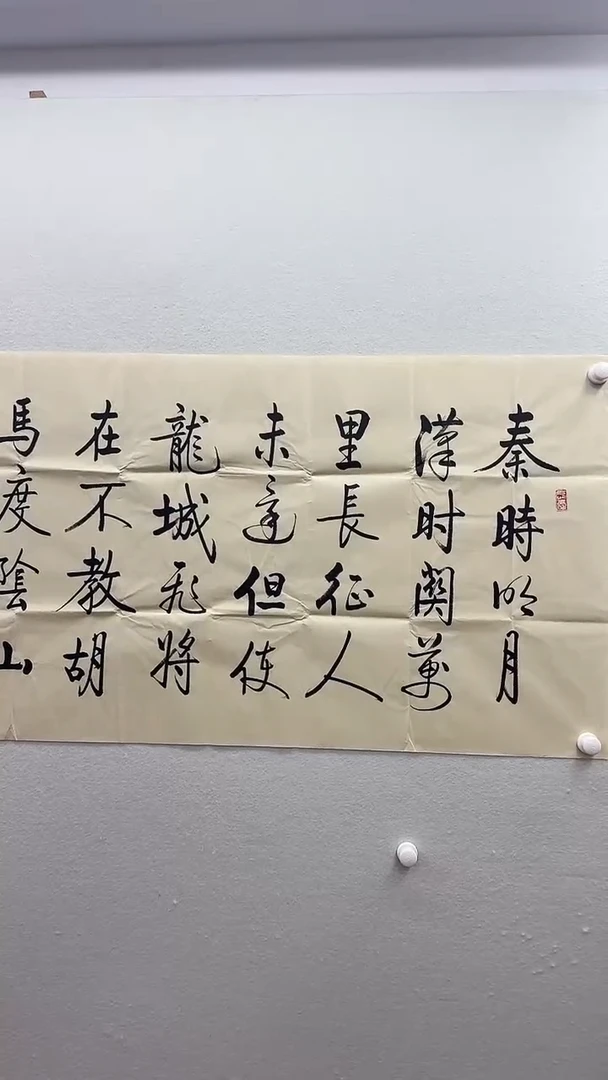 秦時明月
漢时関萬
里長征人
未還但使
龍城飛將
在不教胡
馬度陰山